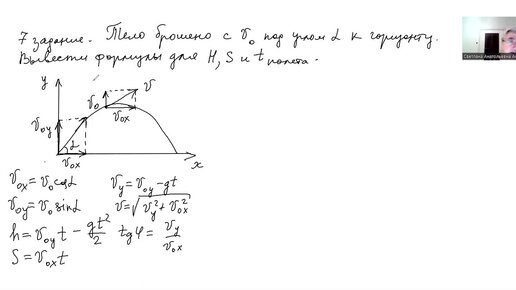 7 задание. Тело брошено с v₀ под углом α к горизонту.
Вывести формулы для H, S и t полета.
y
v
v₀
v₀y
v₀ₓ
α
v₀ₓ
x
v₀ₓ = v₀ cosα
v_y = v₀y - gt
v₀y = v₀ sinα
v = √(v_y² + v₀ₓ²)
h = v₀y t - gt²/2
tgφ = v_y/v₀ₓ
S = v₀ₓ t